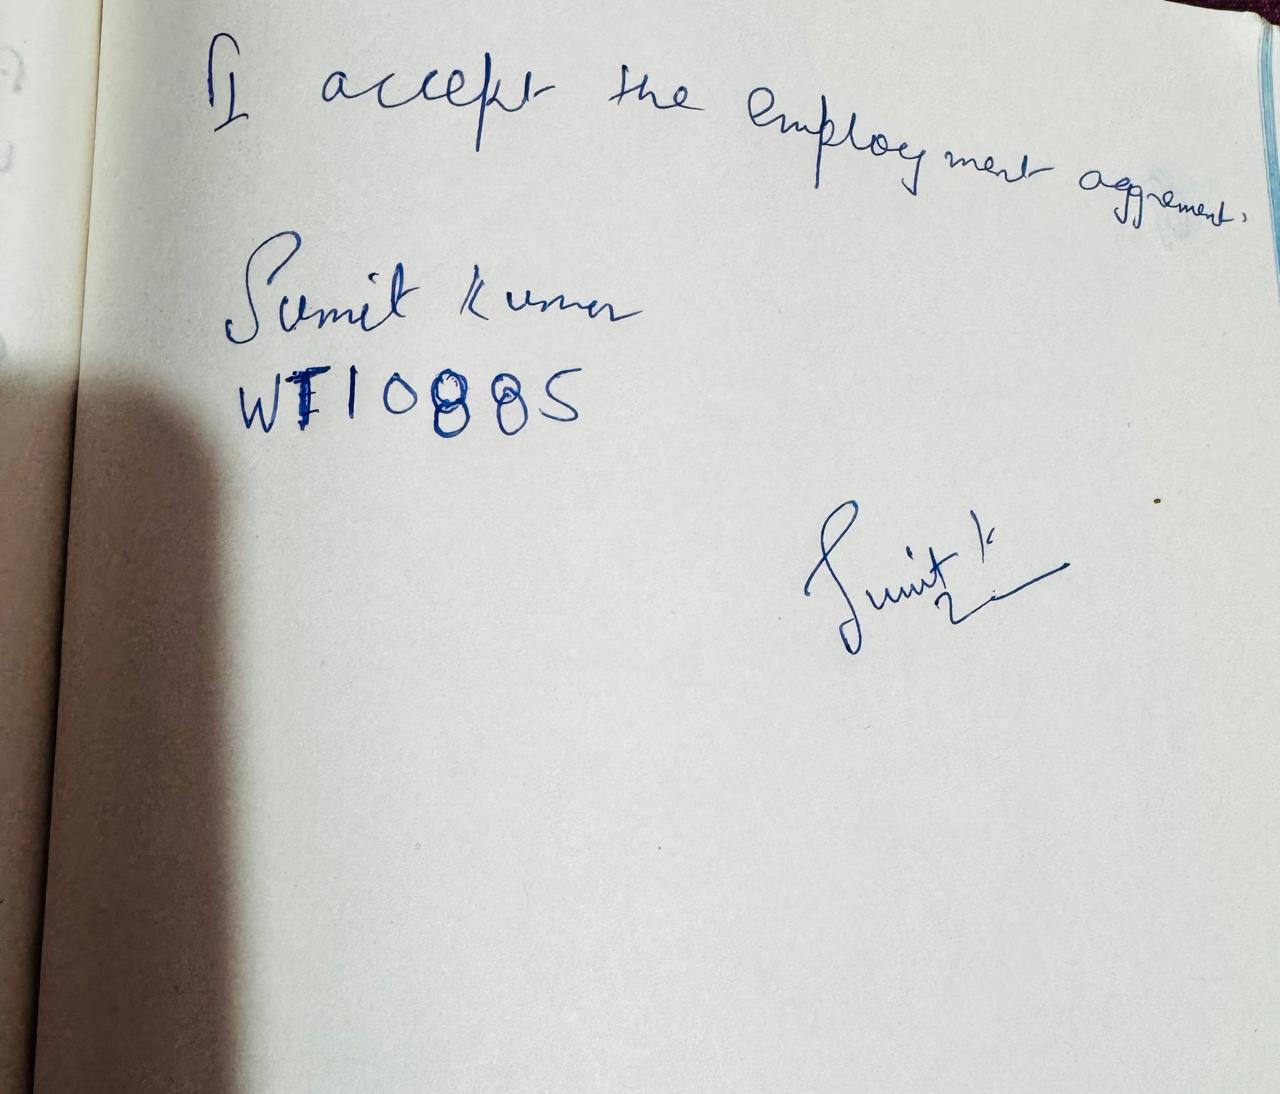 I accept the employment aggrement.
Sumit Kumar
WT10885
Sumit K